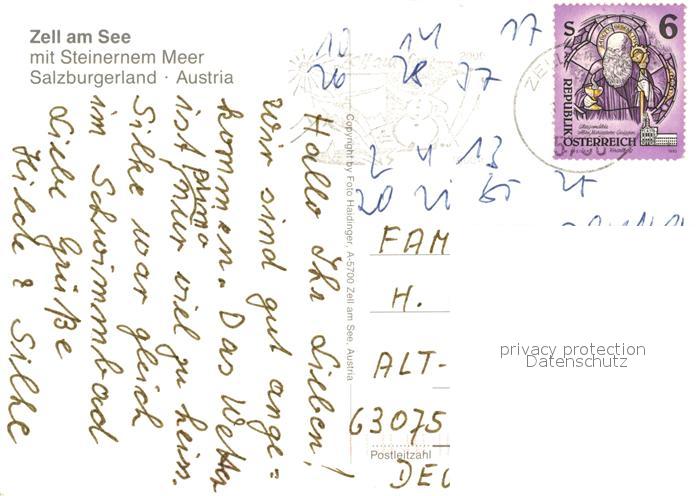 Zell am See
mit Steinernem Meer
Salzburgerland · Austria
Hallo Ihr Lieben!
Wir sind gut ange=
kommen. Das Wetter
ist prima
nur viel zu heiß.
Silke war gleich
im Schwimmbad
Liebe Grüße
& Silke
Copyright by Foto Haidinger, A-5700 Zell am See, Austria
10 14 17
26 28 37
2 4 13
20 21
S 6
REPUBLIK
ÖSTERREICH
FAM
H.
ALT-
63075
Postleitzahl
DEU
privacy protection
Datenschutz